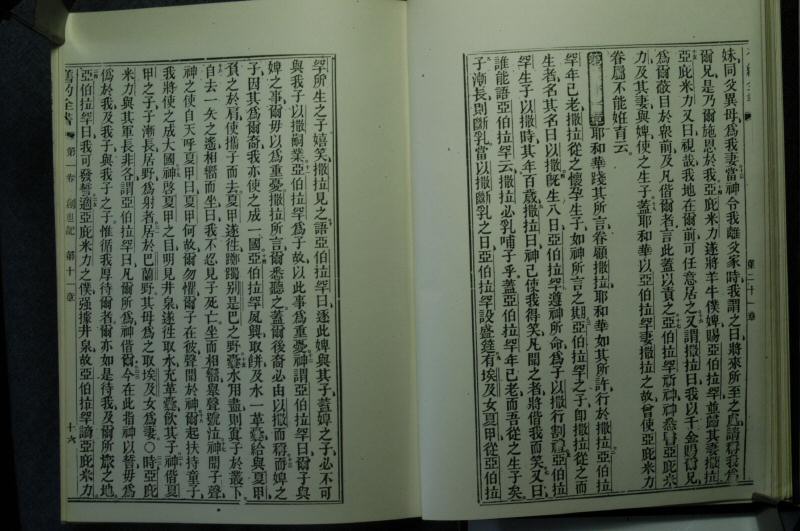 第二十一章
妹同父異母爲我妻當神令我離父家時我謂之曰將來所至之處請稱我爲
爾兄是乃爾施恩於我亞庇米力遂將羊牛僕婢賜亞伯拉罕並歸其妻撒拉
亞庇米力又曰視哉我地在爾前可任意居之又謂撒拉曰我以千金賜爾兄
爲爾蔽目於衆前及凡偕爾者言此蓋以責之亞伯拉罕祈神神悉醫亞庇米
力及其妻與婢使之生子蓋耶和華以亞伯拉罕妻撒拉之故曾使亞庇米力
眷屬不能姙育云
耶和華踐其所言眷顧撒拉耶和華如其所許行於撒拉亞伯拉
罕年已老撒拉從之懷孕生子如神所言之期亞伯拉罕之子卽撒拉從之而
生者名其名曰以撒旣生八日亞伯拉罕遵神所命爲子以撒行割焉亞伯拉
罕生子以撒時其年百歲撒拉曰神已使我得笑凡聞之者將偕我而笑又曰
誰能語亞伯拉罕云撒拉必乳哺子乎蓋亞伯拉罕年已老而吾從之生子矣
子漸長則斷乳當以撒斷乳之日亞伯拉罕設盛筵有埃及女夏甲從亞伯拉
罕所生之子嬉笑撒拉見之語亞伯拉罕曰逐此婢與其子蓋婢之子必不可
與我子以撒嗣業亞伯拉罕爲子故以此事爲重憂神謂亞伯拉罕曰爾子與
婢之事爾毋以爲重憂撒拉所言爾悉聽之蓋爾後裔必由以撒而稱而婢之
子因其爲爾裔我亦使之成一國亞伯拉罕夙興取餅及水一革囊給與夏甲
負之於肩使攜子而去夏甲遂往躑躅別是巴之野囊水用盡則寘子於叢下
自去一矢之遠相嚮而坐曰我不忍見子死亡坐而相嚮舉聲號泣神聞子聲
神之使自天呼夏甲曰夏甲何故爾勿懼爾子在彼聲聞於神爾起扶持童子
我將使之成大國神啓夏甲之目明見井泉遂往取水充革囊飲其子神偕夏
甲之子子漸長居野爲射者居於巴蘭野其母爲之取埃及女爲妻○時亞庇
米力與其軍長非各謂亞伯拉罕曰凡爾所爲神偕爾今在此指神以誓毋爲
僞於我及我子與我子之子惟循我厚待爾者爾亦如是待我及爾所旅之地
亞伯拉罕曰我可發誓適亞庇米力之僕强據井泉故亞伯拉罕讁亞庇米力
舊約全書 第一卷 創世記 第十一章 十六